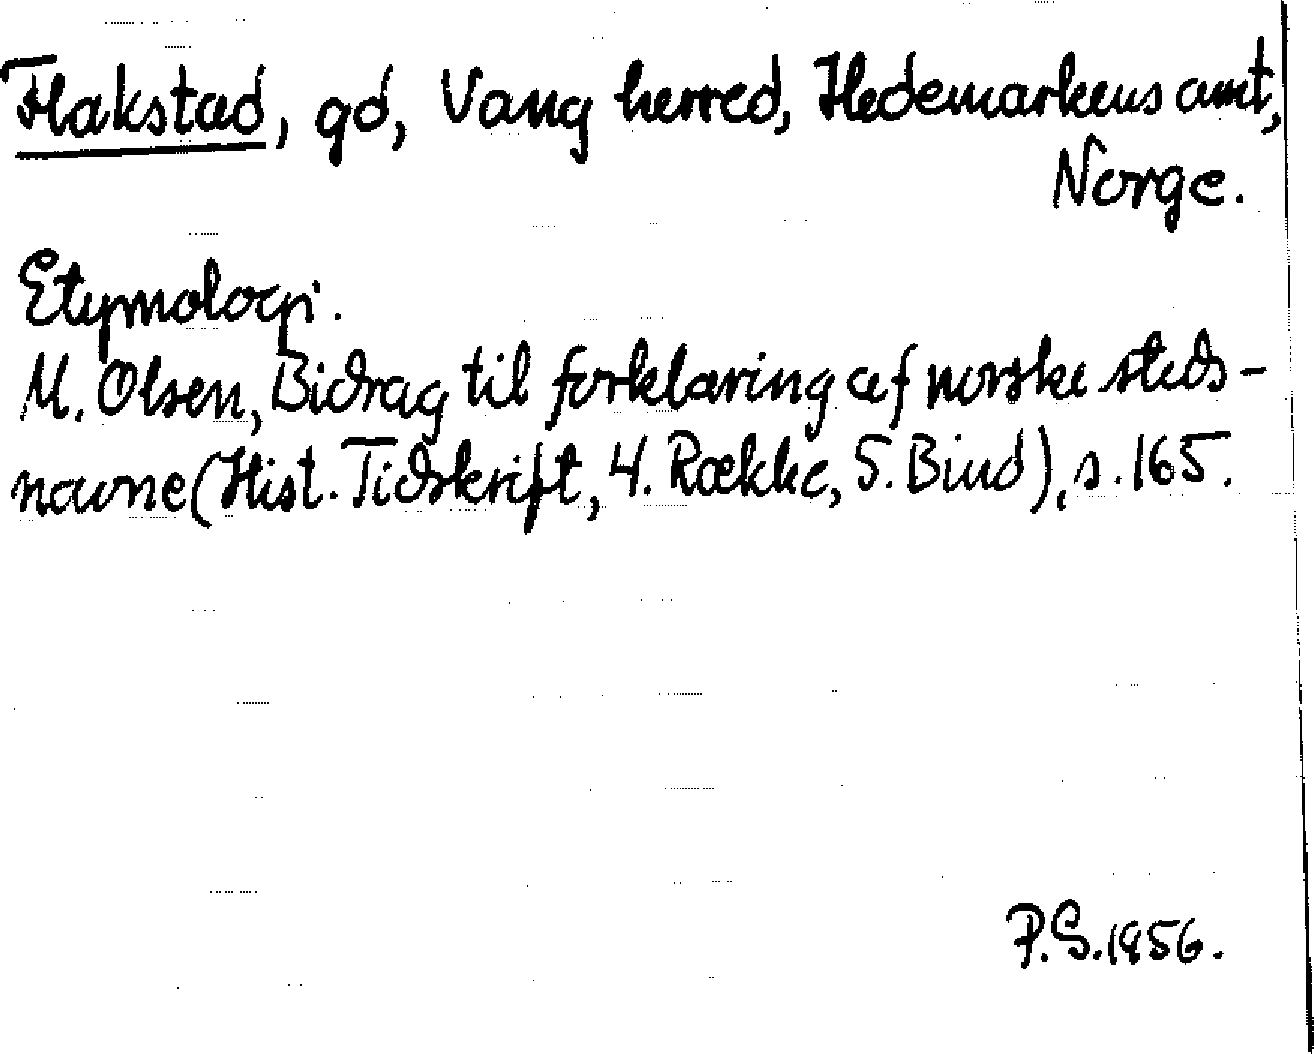 Flakstad, gd, Vang herred, Hedemarkens amt,
Norge.
Etymologi.
M. Olsen, Bidrag til forklaring af norske steds-
navne (Hist. Tidskrift, 4. Række, 5. Bind), s. 165.
P.S. 1856.